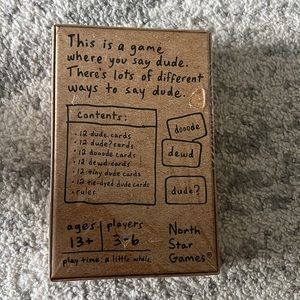 This is a game
where you say dude.
There's lots of different
ways to say dude.
Contents:
• 12 dude cards
• 12 dude? cards
• 12 dooode cards
• 12 dewd cards
• 12 tiny dude cards
• 12 tie-dyed dude cards
• rules
dooode
dewd
dude?
ages
13+
players
3-6
play time: a little while
North
Star
Games